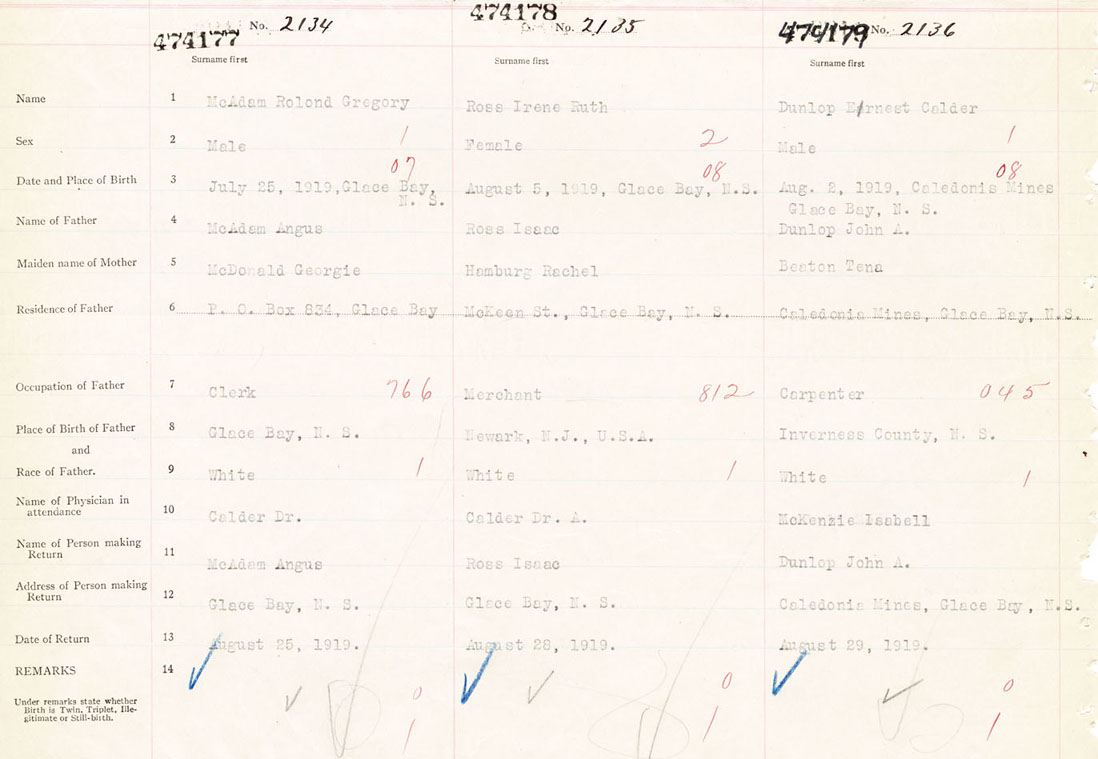 474177 No. 2134 474178 No. 2135 474179 No. 2136
Surname first Surname first Surname first
Name 1 McAdam Rolond Gregory Ross Irene Ruth Dunlop Earnest Calder
Sex 2 Male 1 Female 2 Male 1
07 08 08
Date and Place of Birth 3 July 25, 1919,Glace Bay, August 5, 1919, Glace Bay, N.S. Aug. 2, 1919, Caledonis Mines
N. S. Glace Bay, N. S.
Name of Father 4 McAdam Angus Ross Isaac Dunlop John A.
Maiden name of Mother 5 McDonald Georgie Hamburg Rachel Beaton Tena
Residence of Father 6 P. O. Box 834, Glace Bay McKeen St., Glace Bay, N. S. Caledonia Mines, Glace Bay, N.S.
Occupation of Father 7 Clerk 766 Merchant 812 Carpenter 045
Place of Birth of Father 8 Glace Bay, N. S. Newark, N.J., U.S.A. Inverness County, N. S.
and
Race of Father. 9 White 1 White 1 White 1
Name of Physician in
attendance 10 Calder Dr. Calder Dr. A. McKenzie Isabell
Name of Person making
Return 11 McAdam Angus Ross Isaac Dunlop John A.
Address of Person making
Return 12 Glace Bay, N. S. Glace Bay, N. S. Caledonia Mines, Glace Bay, N.S.
Date of Return 13 August 25, 1919. August 28, 1919. August 29, 1919.
REMARKS 14
0 0 0
Under remarks state whether
Birth is Twin, Triplet, Ille-
gitimate or Still-birth.
1 1 1